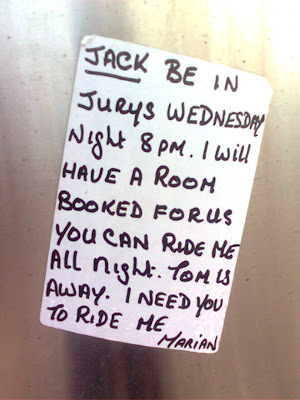 JACK BE IN
JURYS WEDNESDAY
Night 8 PM. I Will
HAVE A ROOM
BOOKED FOR US
YOU CAN RIDE ME
All Night. TOM IS
AWAY. I NEED YOU
TO RIDE ME
MARIAN